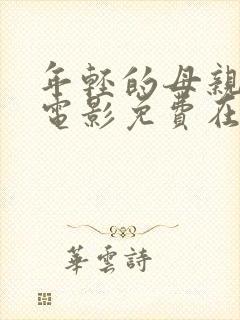 年輕的母親
電影免費在
華雲詩